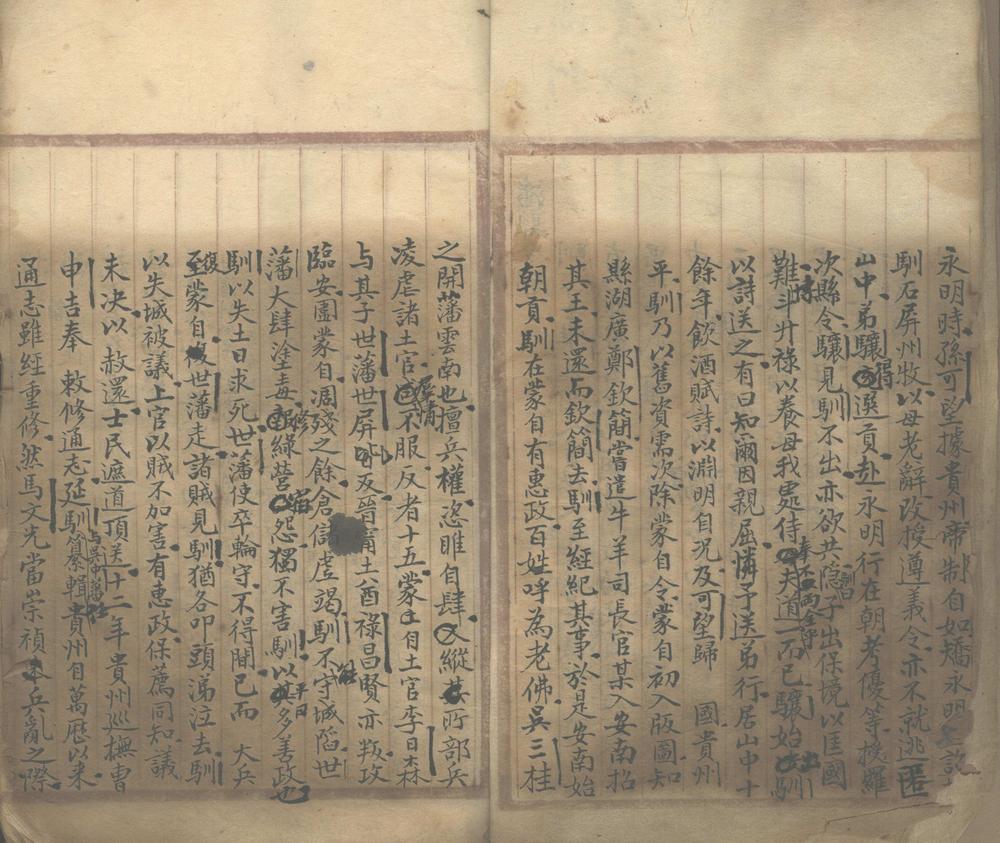 永明時孫可望據貴州帝制自如矯永明
馴石屏州牧以母老辭改授遵義令亦不就逃匿
山中弟驤得選貢赴永明行在朝考優等授羅
次縣令驤見馴不出亦欲共隱馴曰子出保境以匡國
難斗升祿以養母我處侍奉不兩全乎驤始出馴
以詩送之有曰知爾因親屈憐予送弟行居山中十
餘年飲酒賦詩以淵明自況及可望歸 國貴州
平馴乃以舊資需次除蒙自令蒙自初入版圖知
縣湖廣鄭欽簡嘗遣牛羊司長官某入安南招
其王未還而欽簡去馴至經紀其事於是安南始
朝貢馴在蒙自有惠政百姓呼為老佛吳三桂
之開藩雲南也擅兵權恣睢自肆縱所部兵
凌虐諸土官群情不服反者十五蒙自土官李日森
与其子世藩世屏及晉甯土酋祿昌賢亦叛攻
臨安圍蒙自凋殘之餘倉儲虛竭馴不守城陷世
藩大肆塗毒修綠營宿怨獨不害馴以平日多善政也
馴以失土日求死世藩使卒輪守不得間已而 大兵
至復蒙自世藩走諸賊見馴猶各叩頭涕泣去馴
以失城被議上官以賊不加害有惠政保薦同知議
未決以赦還士民遮道頂送十二年貴州巡撫曹
申吉奉 敕修通志延馴与吳中蕃纂輯貴州自萬歷以來
通志雖經重修然馬文光當崇禎兵亂之際